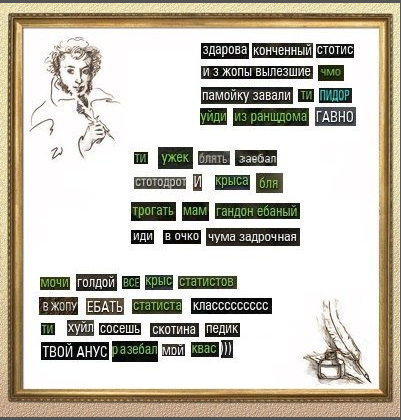 здарова конченный стотис
и з жопы вылезшие чмо
памойку завали ти ПИДОР
уйди из ранщдома ГАВНО
ти ужек блять заебал
стотодрот И крыса бля
трогать мам гандон ебаный
иди в очко чума задрочная
мочи голдой ВСЕ крыс статистов
в жопу ЕБАТЬ статиста класссссссссс
ти хуйл сосешь скотина педик
ТВОЙ АНУС разебал мой квас )))